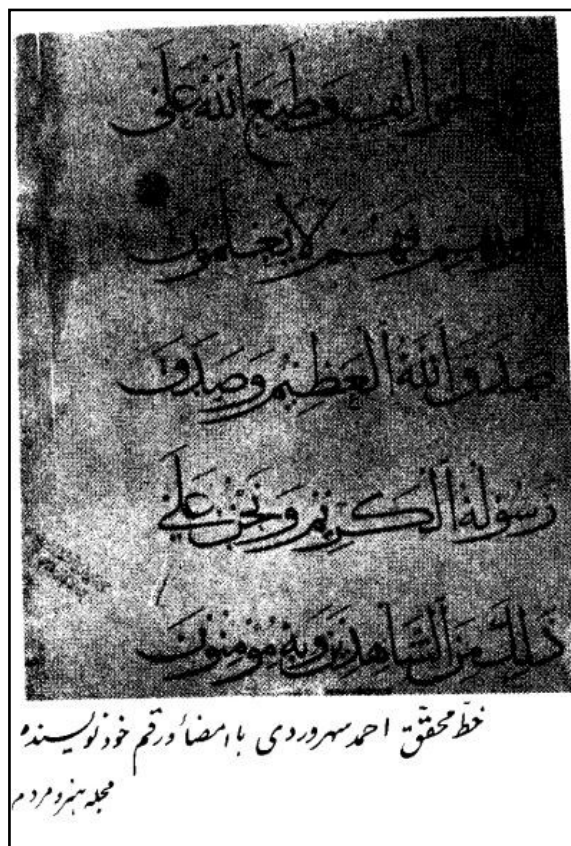 الخوالف وَطَبَعَ اللّٰهُ عَلَى
قلوبهم فَهُمْ لَا يَعْلَمُونَ
صَدَقَ اللّٰهُ الْعَظِيمُ وَصَدَقَ
رَسُولُهُ الْكَرِيمُ وَنَحْنُ عَلَى
ذٰلِكَ مِنَ الشَّاهِدِينَ وَبِهِ مُؤْمِنُونَ
خطّ محقّق احمد سهروردی با امضأ ورقم خود نویسنده
مجله هنر و مردم